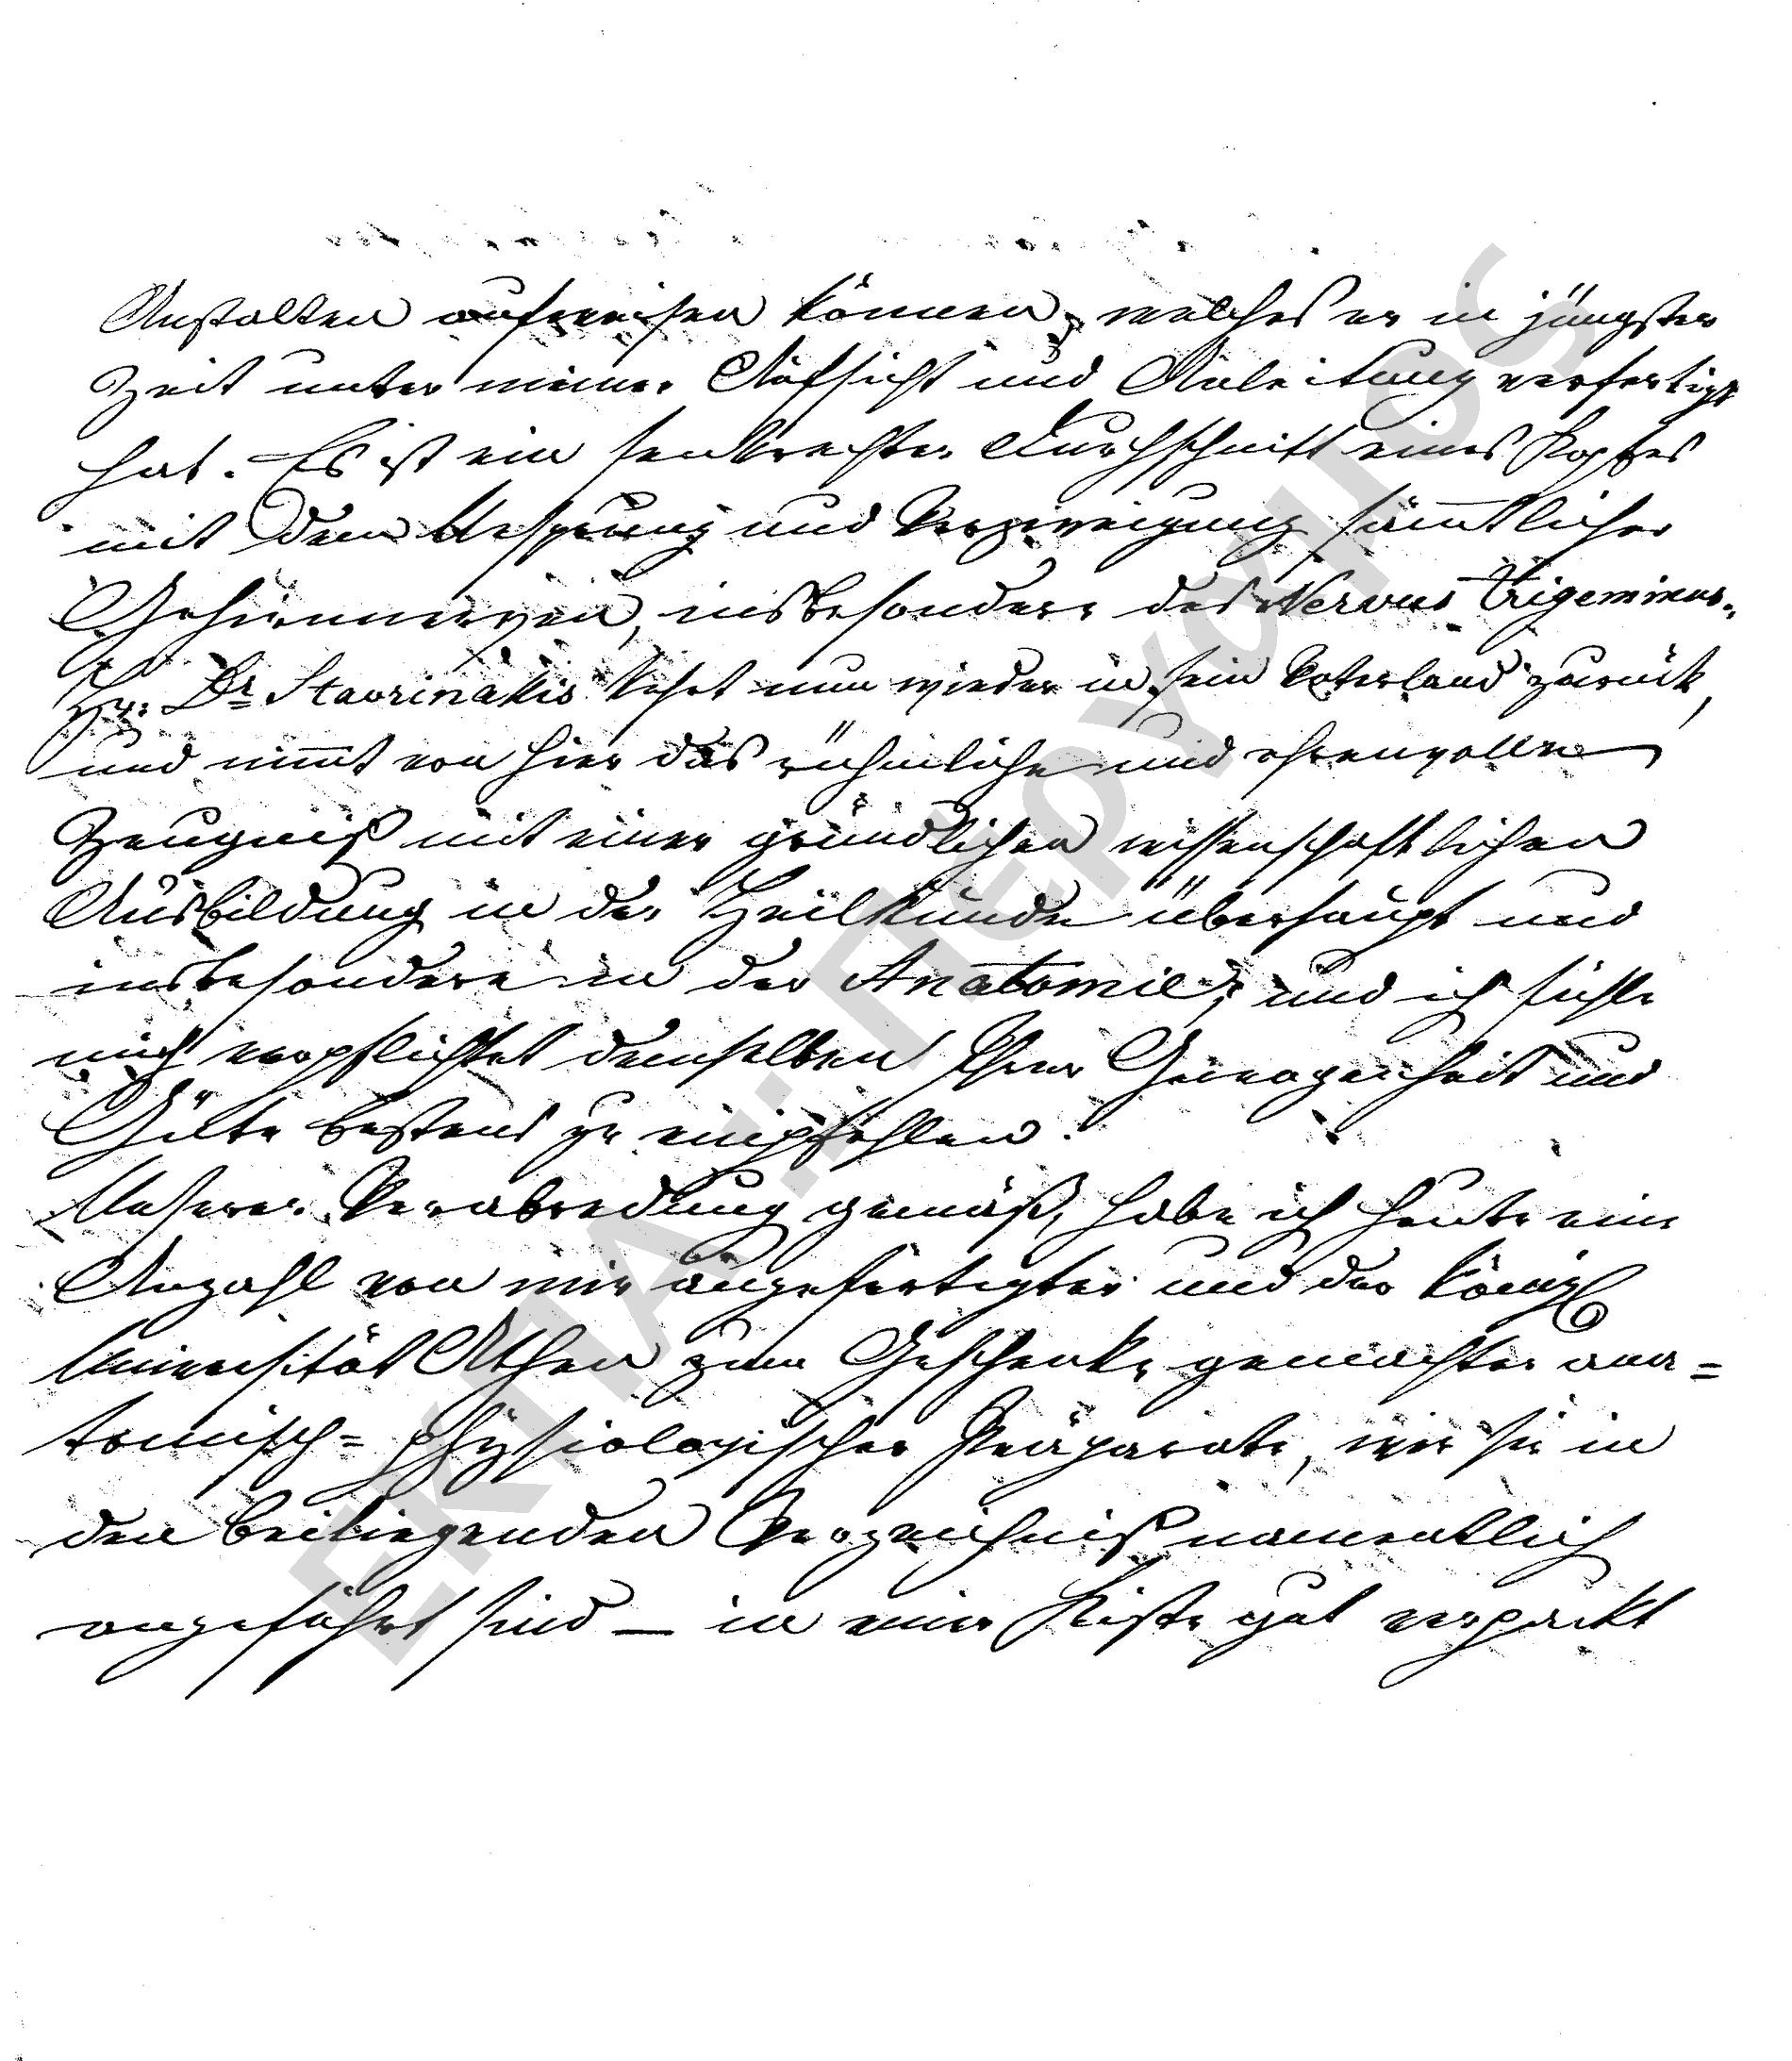 Anstalten aufweisen können, welches er in jüngster
Zeit unter meiner Aufsicht und Anleitung verfertigt
hat. Es ist ein senkrechter Durchschnitt eines Kopfes
mit dem Ursprung und Verzweigung sämtlicher
Gehirnnerven, insbesondere des Nervus trigeminus.
Hr. Dr Stavrinakis kehrt nun wieder in sein Vaterland zurück,
und nimt von hier das rühmliche und ehrenvolle
Zeugniß mit einer gründlichen wissenschaftlichen
Ausbildung in der Heilkunde überhaupt und
insbesondere in der Anatomie, und ich fühle
mich verpflichtet demselben Ihrer Gewogenheit und
Güte bestens zu empfehlen.
Unserer Verabredung gemäß, habe ich heute eine
Anzahl von mir angefertigter und der königl
Universität Athen zum Geschenke gemachter ana=
tomisch=physiologischer Präparate, wie sie in
den beiliegenden Verzeichniß namentlich
angeführt sind — in einer Kiste gut verpackt
ΕΚΠΑ :: Πέργαμος